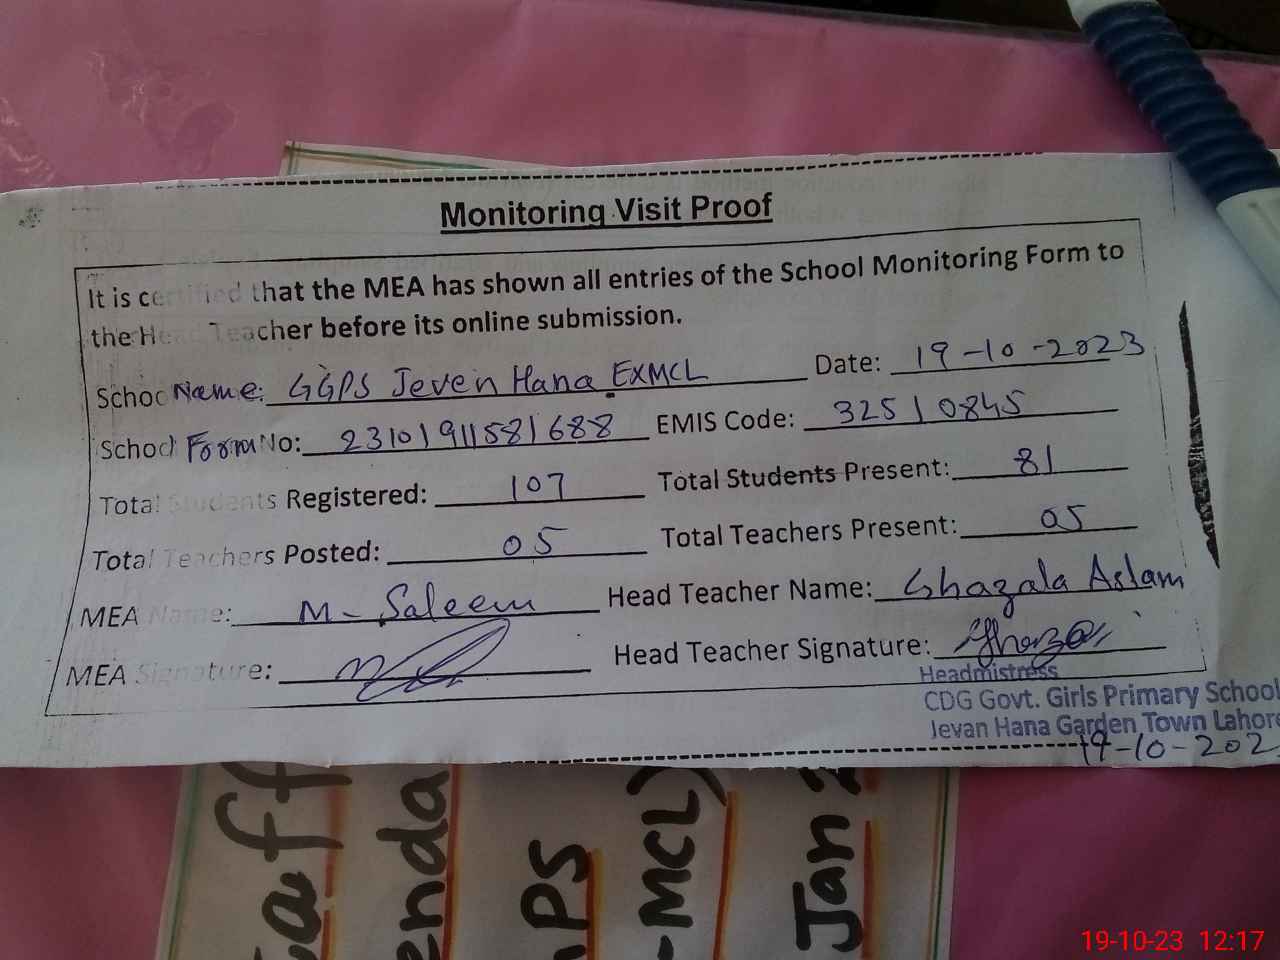 Monitoring Visit Proof
It is certified that the MEA has shown all entries of the School Monitoring Form to
the Head Teacher before its online submission.
School Name: GGPS Jeven Hana EXMCL Date: 19-10-2023
School Form No: 23101911581688 EMIS Code: 32510845
Total Students Registered: 107 Total Students Present: 81
Total Teachers Posted: 05 Total Teachers Present: 05
MEA Name: M- Saleem Head Teacher Name: Ghazala Aslam
MEA Signature: Head Teacher Signature:
Headmistress
CDG Govt. Girls Primary School
Jevan Hana Garden Town Lahore
19-10-202
enda
PS
-MCL)
Jan
19-10-23 12:17